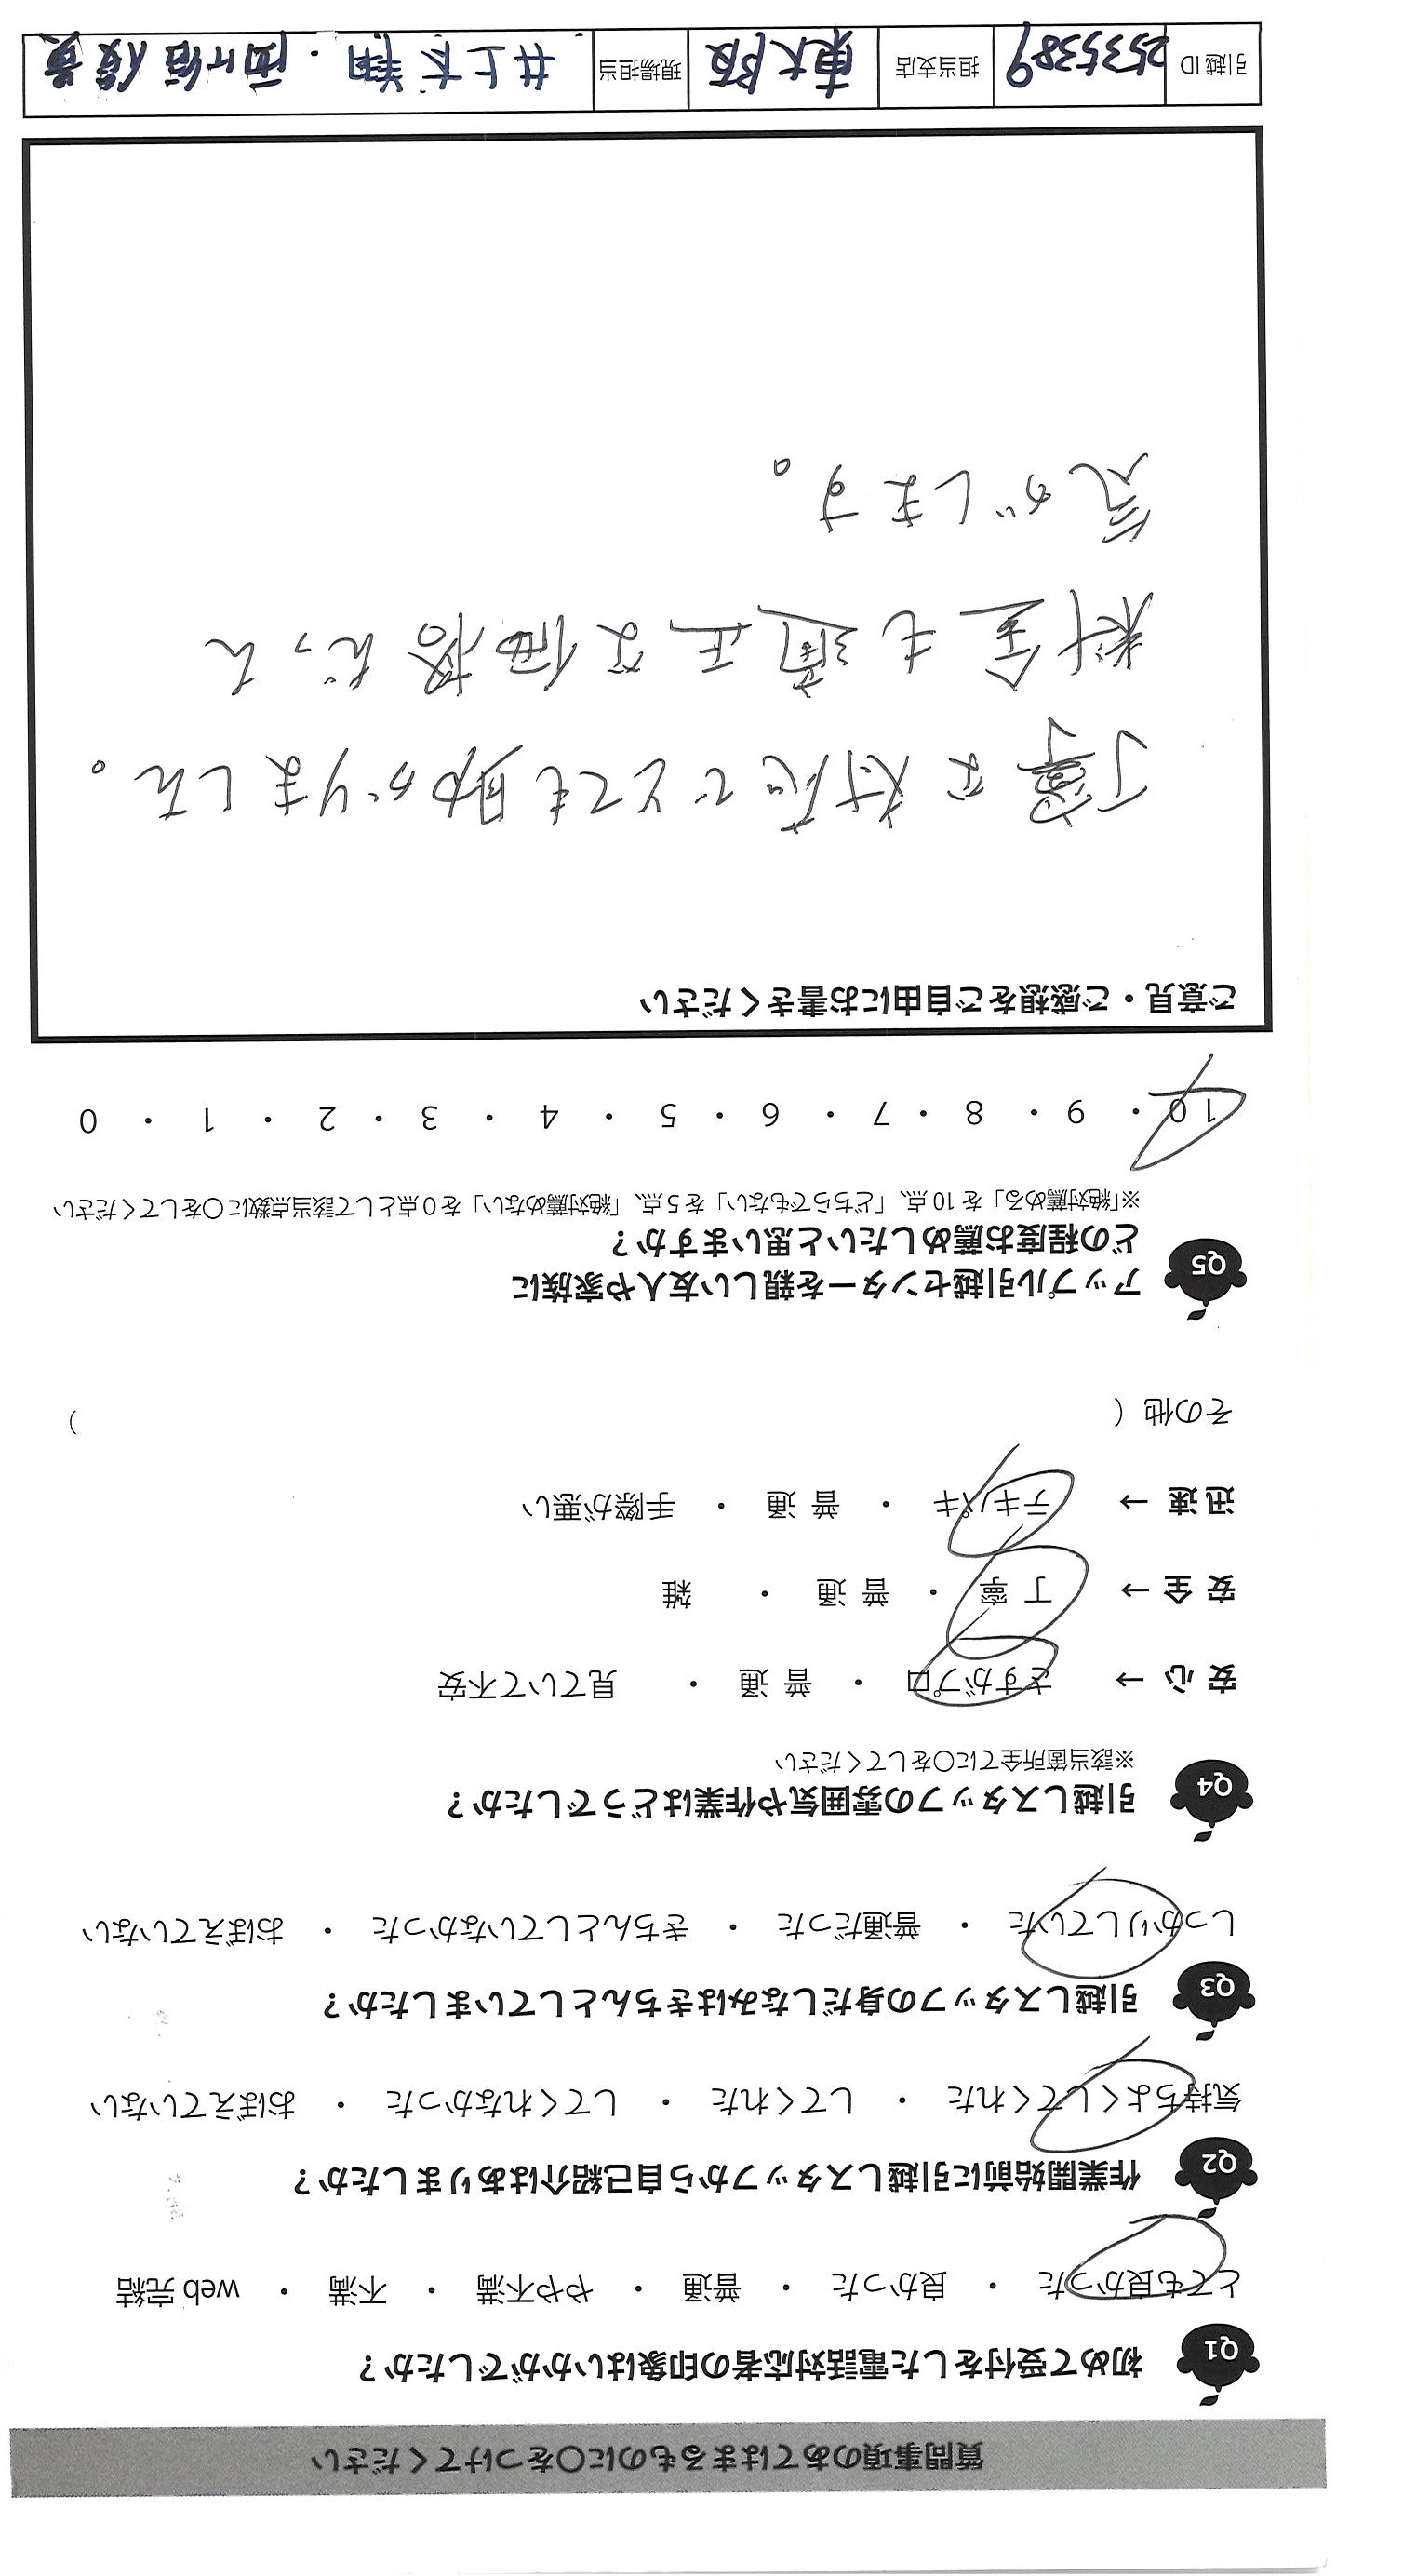 質問事項のあてはまるものに○をつけてください
Q1 初めて受付をした電話対応者の印象はいかがでしたか？
とても良かった ・ 良かった ・ 普通 ・ やや不満 ・ 不満 ・ web 完結
Q2 作業開始前に引越しスタッフから自己紹介はありましたか？
気持ちよくしてくれた ・ してくれた ・ してくれなかった ・ おぼえていない
Q3 引越しスタッフの身だしなみはきちんとしていましたか？
しっかりしていた ・ 普通だった ・ きちんとしていなかった ・ おぼえていない
Q4 引越しスタッフの雰囲気や作業はどうでしたか？
※該当箇所全てに○をしてください
安 心 → さすがプロ ・ 普 通 ・ 見ていて不安
安 全 → 丁 寧 ・ 普 通 ・ 雑
迅 速 → テキパキ ・ 普 通 ・ 手際が悪い
その他（ ）
Q5 アップル引越センターを親しい友人や家族に
どの程度お薦めしたいと思いますか？
※「絶対薦める」を 10 点、「どちらでもない」を 5 点、「絶対薦めない」を 0 点として該当点数に○をしてください
10 ・ 9 ・ 8 ・ 7 ・ 6 ・ 5 ・ 4 ・ 3 ・ 2 ・ 1 ・ 0
ご意見・ご感想をご自由にお書きください
丁寧な対応でとても助かりました。
料金も適正な価格だった
気がします。
引越 ID 2535389 担当支店 東大阪 現場担当 井上太翔・